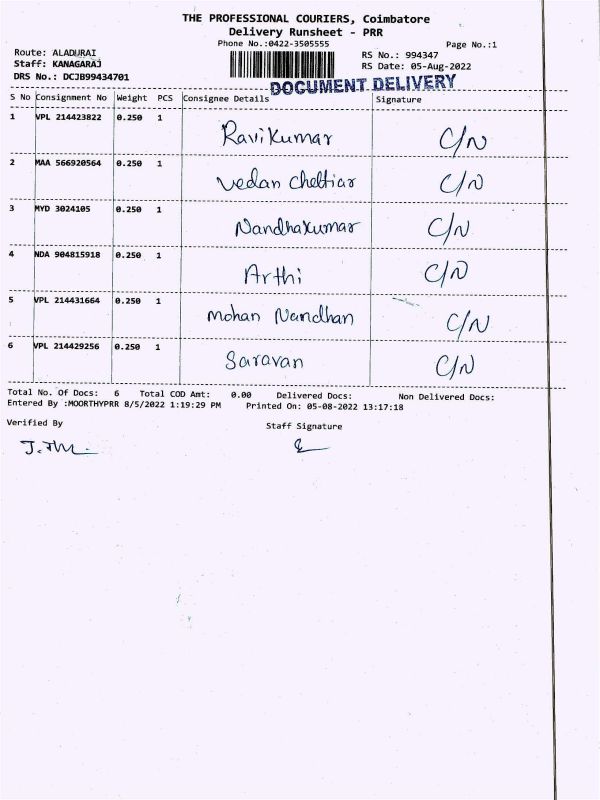 THE PROFESSIONAL COURIERS, Coimbatore
Delivery Runsheet - PRR
Phone No.:0422-3505555 Page No.:1
Route: ALADURAI RS No.: 994347
Staff: KANAGARAJ RS Date: 05-Aug-2022
DRS No.: DCJB99434701
DOCUMENT DELIVERY
S No Consignment No Weight PCS Consignee Details Signature
1 VPL 214423822 0.250 1 Ravikumar C/N
2 MAA 566920564 0.250 1 Vedan Chettiar C/N
3 MYD 3024105 0.250 1 Nandhakumar C/N
4 NDA 904815918 0.250 1 Arthi C/N
5 VPL 214431664 0.250 1 Mohan Nandhan C/N
6 VPL 214429256 0.250 1 Saravan C/N
Total No. Of Docs: 6 Total COD Amt: 0.00 Delivered Docs: Non Delivered Docs:
Entered By :MOORTHYPRR 8/5/2022 1:19:29 PM Printed On: 05-08-2022 13:17:18
Verified By Staff Signature